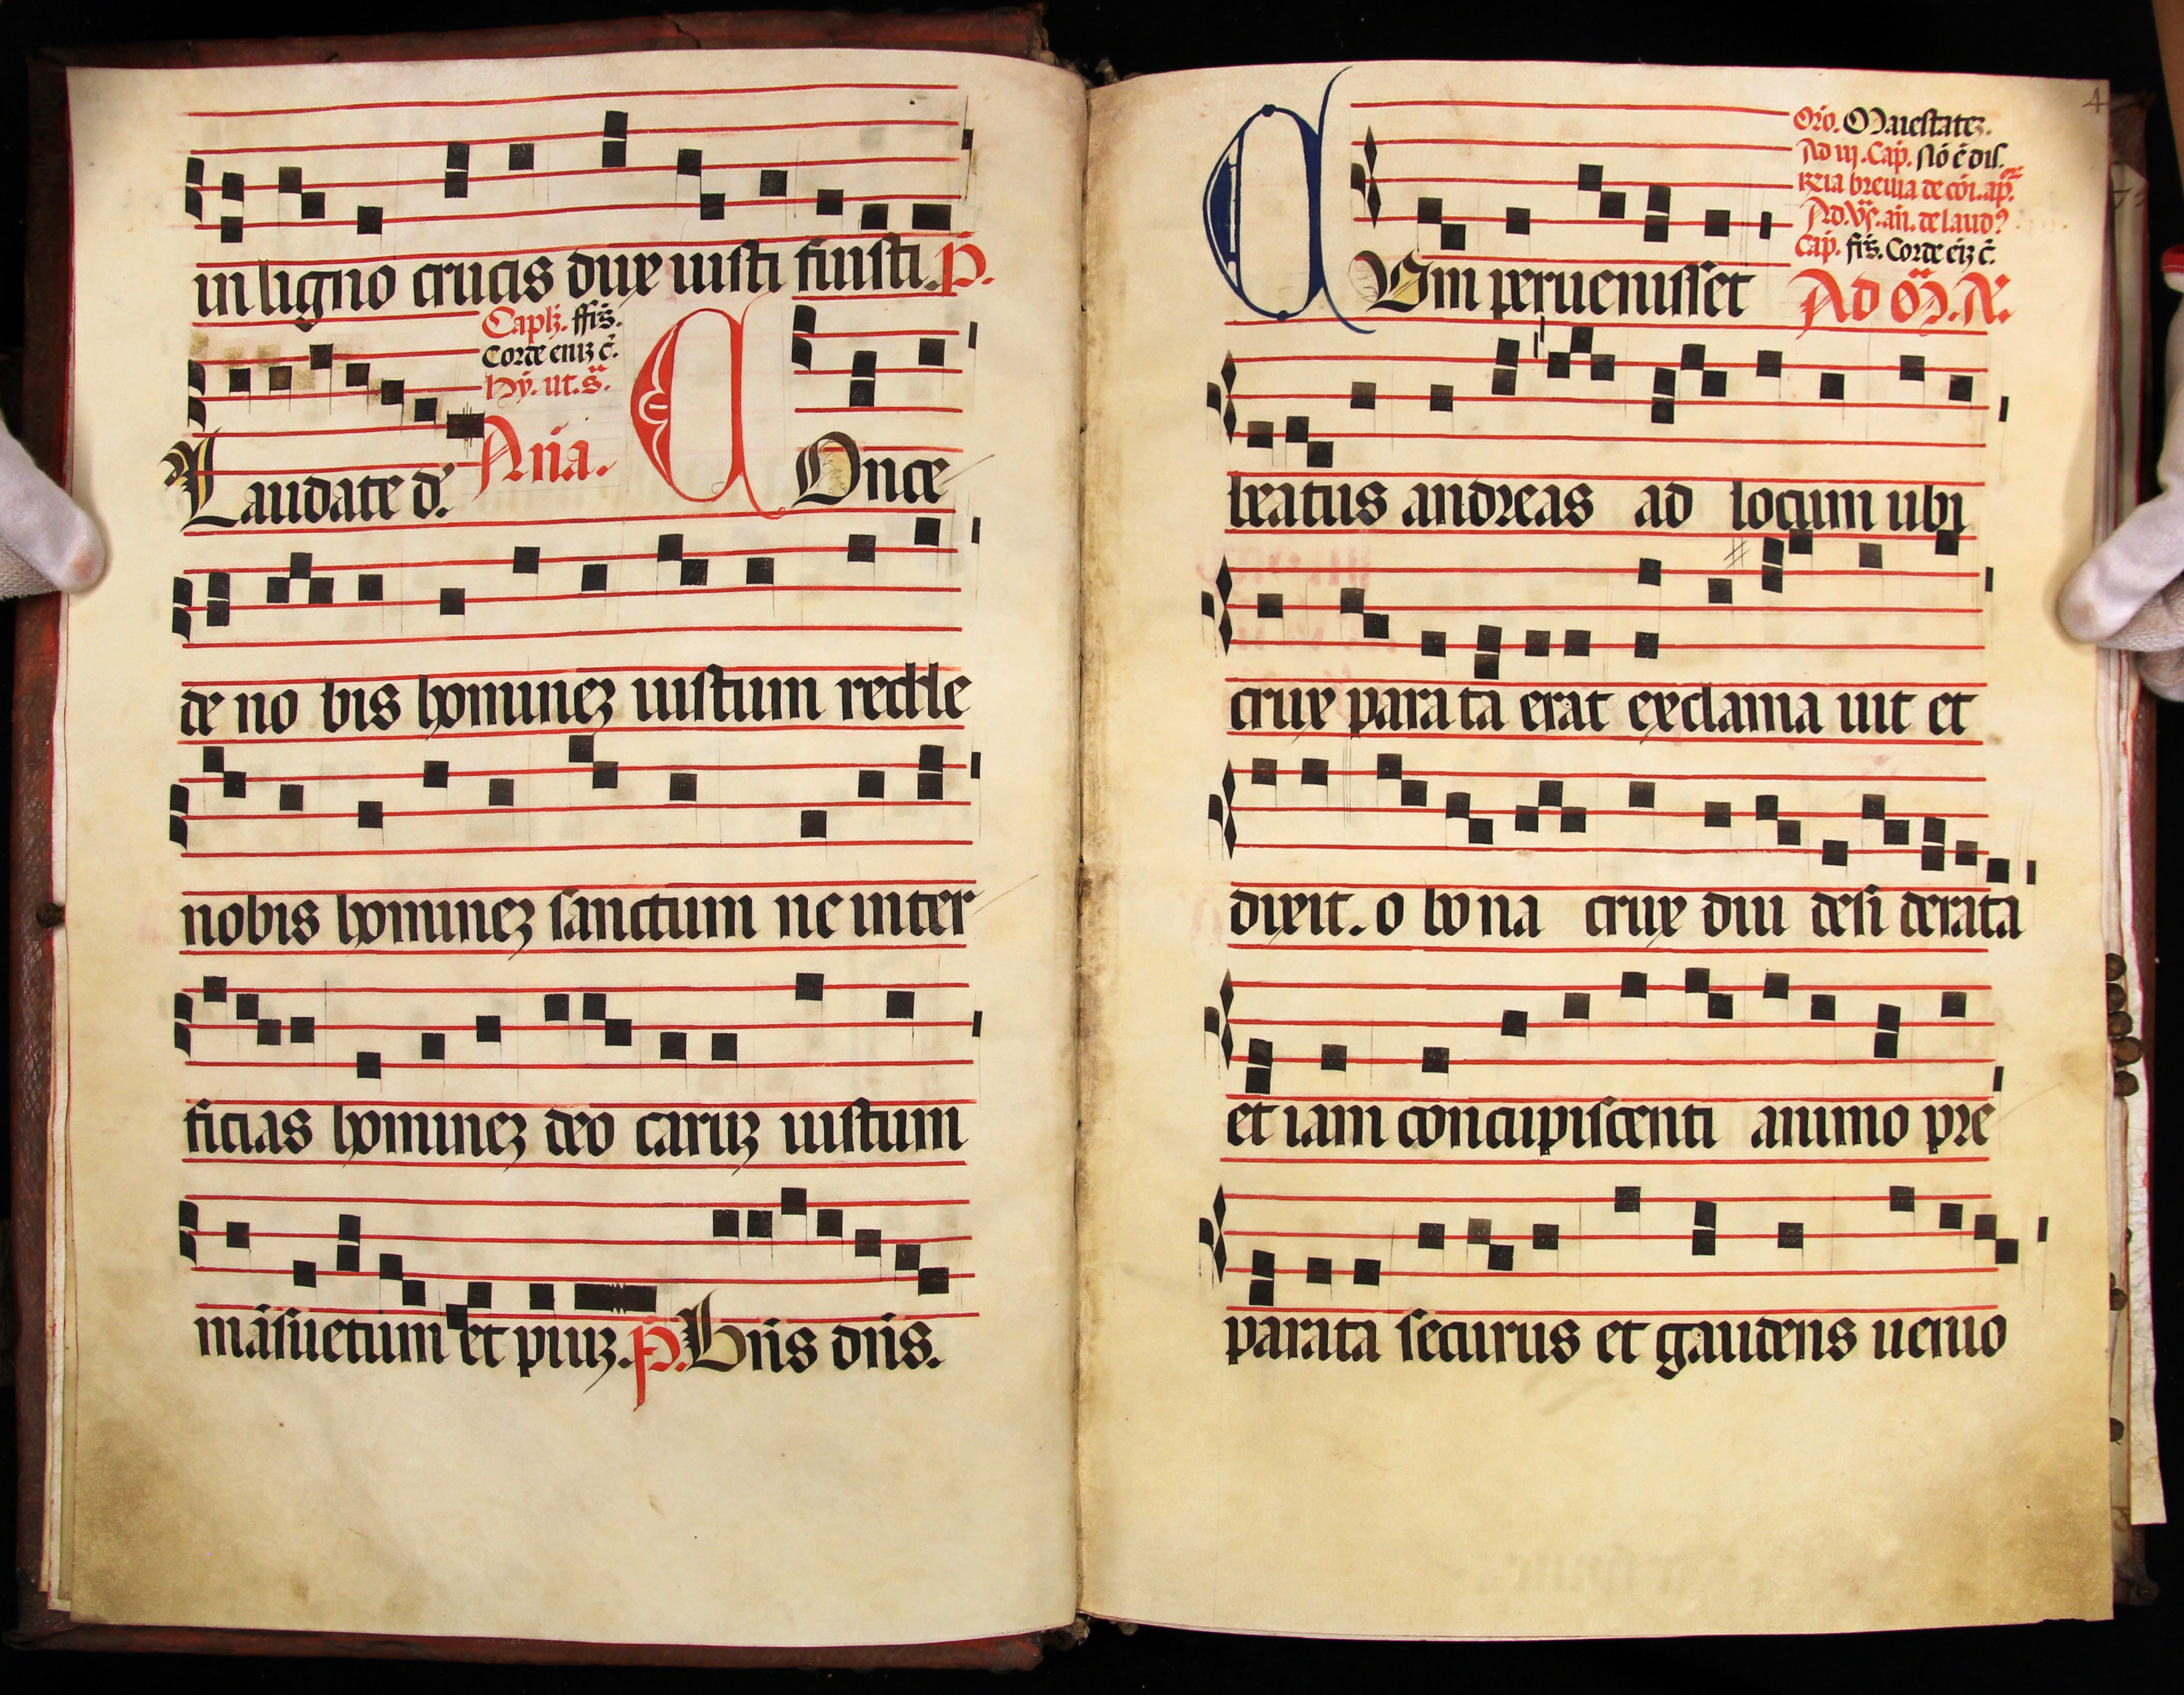 in ligno crucis dux iusti fuisti. P.
Caplz. ffrs.
Corde eniz c̄.
Hy. ut. s.
Laudate d. Ana. COnce
de no bis hominez iustum redde
nobis hominez sanctum ne inter
ficias hominez deo caruz iustum
māsuetum et piuz. p. Bn̄s dn̄s.
4
Oro. Maiestatez.
Ad iij. Cap. Nō ē dis.
Rria breuia de cōi. ap.
Ad. Vs. an. de laud
Cap. frs. Corde eiz c̄.
CUm peruenisset Ad M. A.
beatus andreas ad locum ubi
crux para ta erat exclama uit et
dixit. o bo na crux diu desi derata
et iam concupiscenti animo pre
parata securus et gaudens uenio